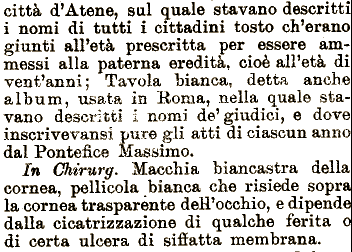 città d'Atene, sul quale stavano descritti
i nomi di tutti i cittadini tosto ch'erano
giunti all'età prescritta per essere am-
messi alla paterna eredità, cioè all'età di
vent'anni; Tavola bianca, detta anche
album, usata in Roma, nella quale sta-
vano descritti i nomi de' giudici, e dove
inscrivevansi pure gli atti di ciascun anno
dal Pontefice Massimo.
In Chirurg. Macchia biancastra della
cornea, pellicola bianca che risiede sopra
la cornea trasparente dell'occhio, e dipende
dalla cicatrizzazione di qualche ferita o
di certa ulcera di siffatta membrana.